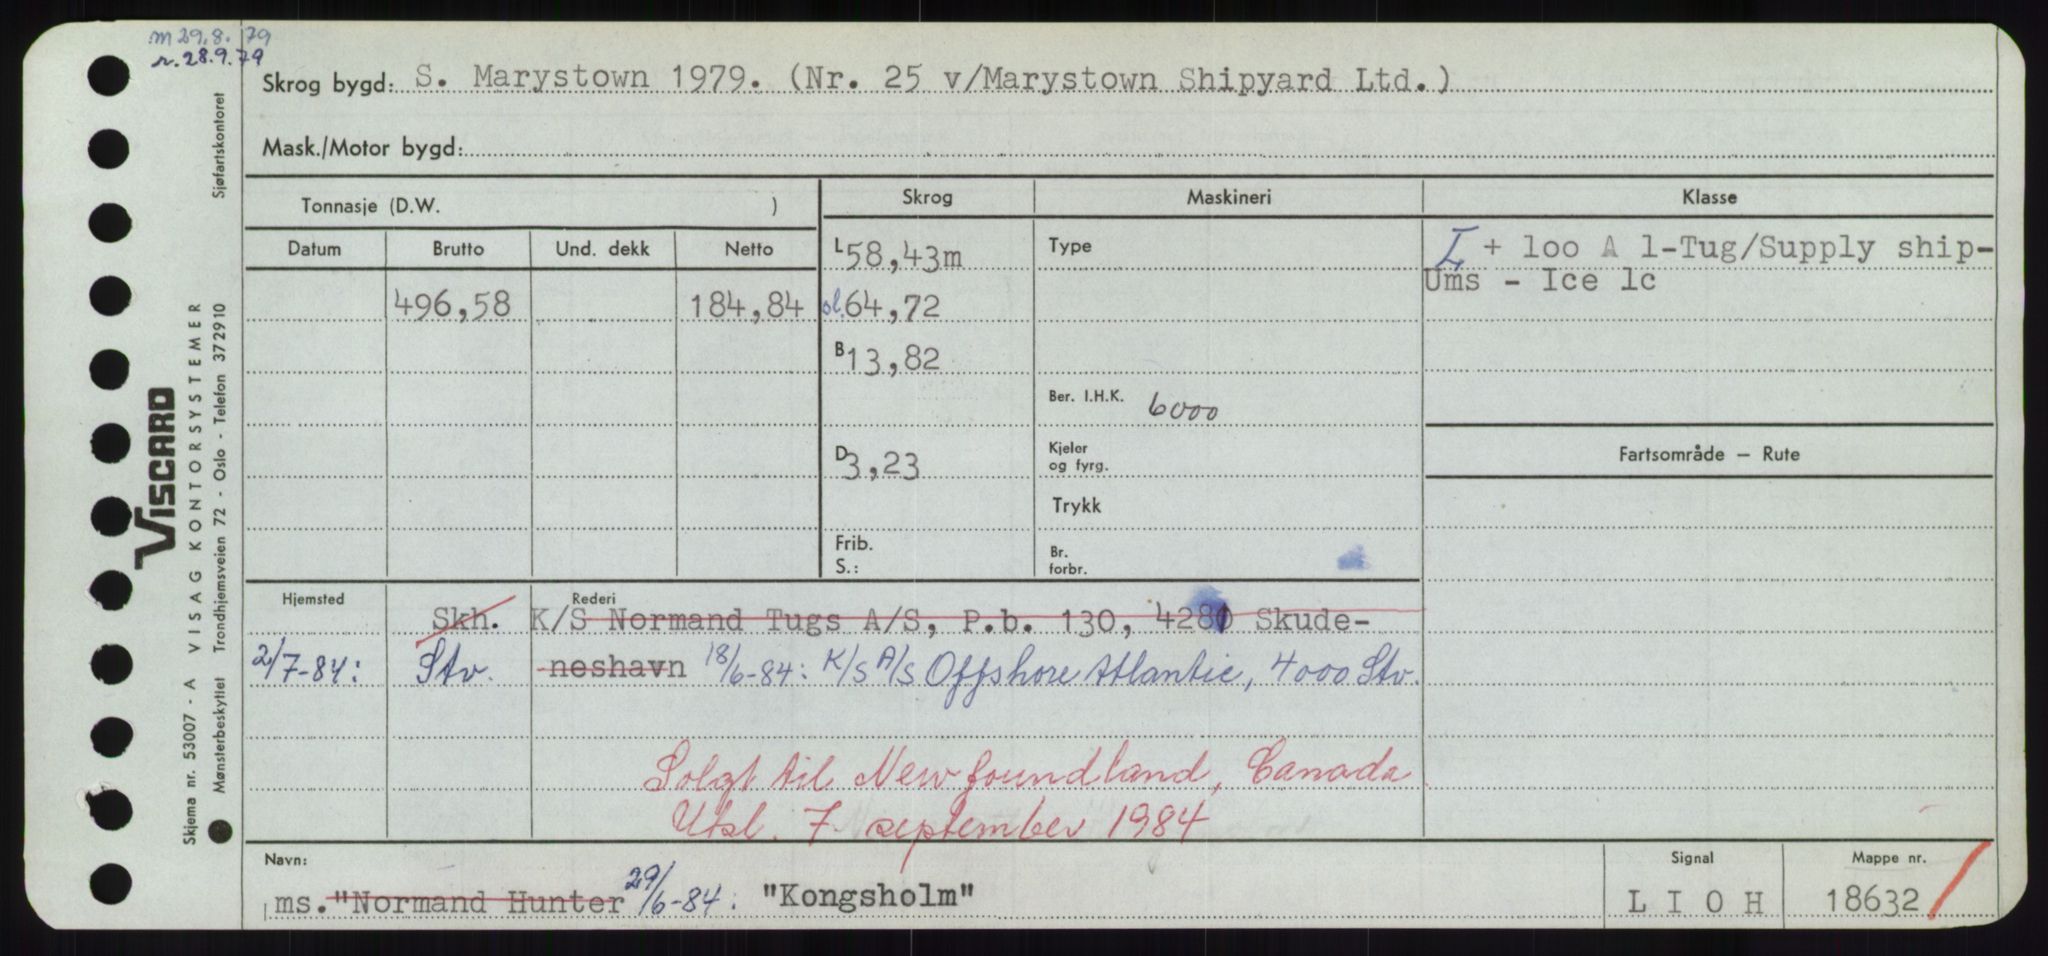 m 29.8.79
r. 28.9.79
Skrog bygd: S. Marystown 1979. (Nr. 25 v/Marystown Shipyard Ltd.)
Mask./Motor bygd:
Tonnasje (D.W. )
Skrog
Maskineri
Klasse
Datum
Brutto
Und. dekk
Netto
L 58,43m
Type
+ 100 A 1-Tug/Supply ship-
Ums - Ice 1c
496,58
184,84
ol. 64,72
B 13,82
Ber. I.H.K. 6000
D 3,23
Kjeler
og fyrg.
Fartsområde – Rute
Trykk
Frib.
S.:
Br.
forbr.
Hjemsted
Rederi
Skh. K/S Normand Tugs A/S, P.b. 130, 4280 Skude-
2/7-84: Stv. neshavn 18/6-84: K/S A/S Offshore Atlantic, 4000 Stv.
Solgt til Newfoundland, Canada
Utsl. 7. september 1984
Navn:
ms. "Normand Hunter 29/6-84: "Kongsholm"
Signal
L I O H
Mappe nr.
18632
Sjøfartskontoret
VISCARD
VISAG KONTORSYSTEMER
Trondhjemsveien 72 - Oslo - Telefon 372910
Skjema nr. 53007 - A
Mønsterbeskyttet